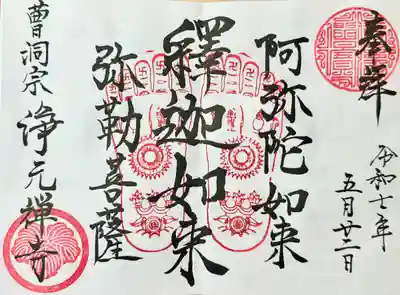 奉拝
令和七年
五月廿二日
阿弥陀如来
釋迦如来
弥勒菩薩
曹洞宗 浄元禅寺